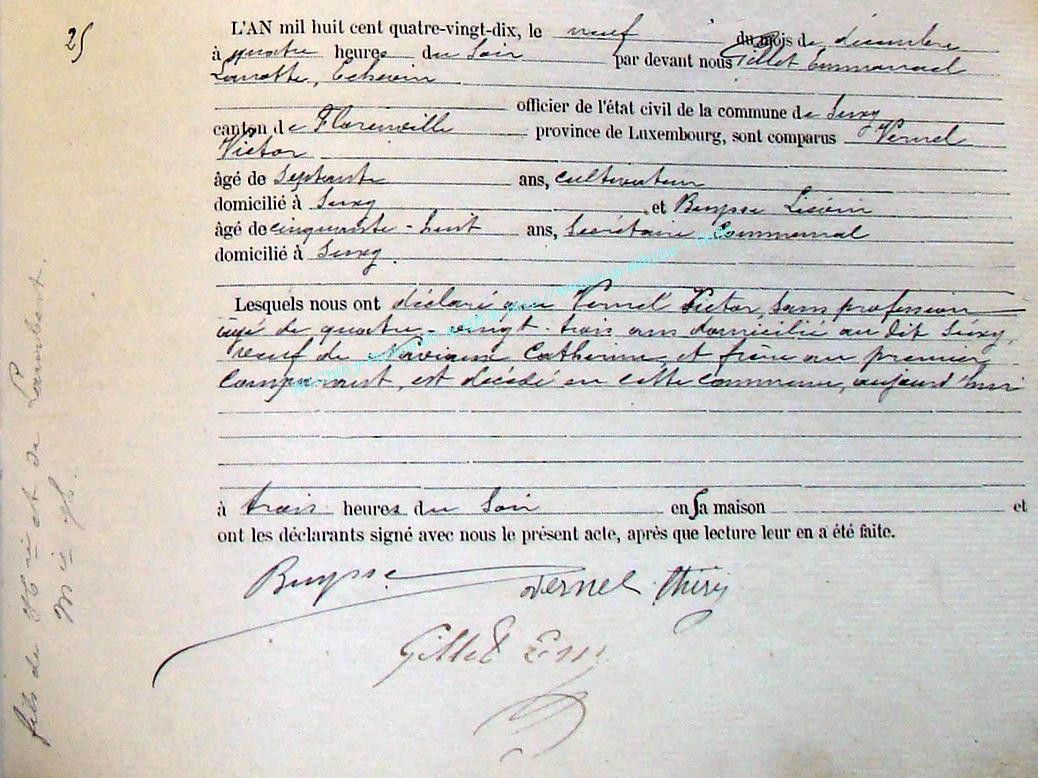 25
L'AN mil huit cent quatre-vingt-dix, le neuf du mois de décembre
à quatre heures du soir par devant nous Gillet Emmanuel
Lamotte, Echevin
officier de l'état civil de la commune de Suxy
canton de Florenville province de Luxembourg, sont comparus Vernel
Victor
âgé de septante ans, cultivateur
domicilié à Suxy et Buysse Liévin
âgé de cinquante-huit ans, Secrétaire Communal
domicilié à Suxy.
Lesquels nous ont déclaré que Vernel Victor, sans profession
âgé de quatre-vingt-trois ans domicilié au dit Suxy,
veuf de Catherine et frère au premier
comparant, est décédé en cette commune, aujourd'hui
à trois heures du soir en sa maison et
ont les déclarants signé avec nous le présent acte, après que lecture leur en a été faite.
Buysse Vernel
Gillet Em
fils de et de Lambert.